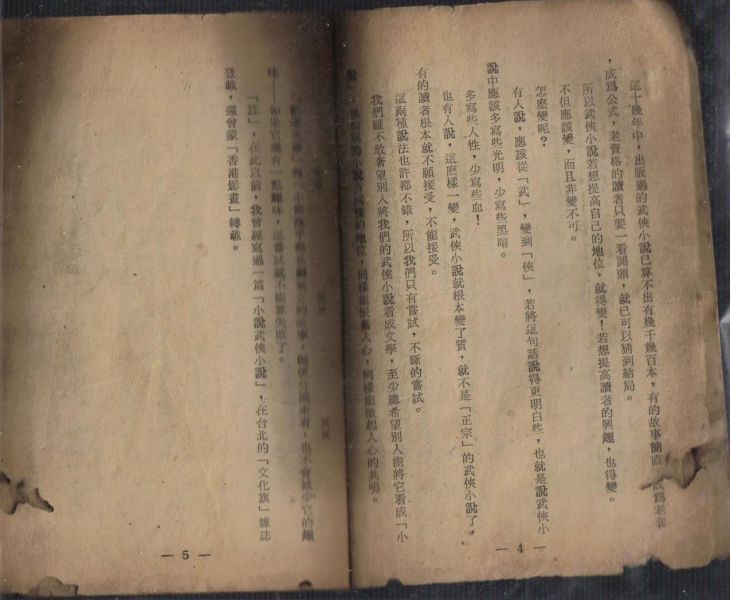 這十幾年中，出版過的武俠小說已算不出有幾千幾百本，有的故事簡直 成爲老套
，成爲公式，老資格的讀者只要一看開頭，就已可以猜到結局。
所以武俠小說若想提高自己的地位，就得變！若想提高讀者的興趣，也得變。
不但應該變，而且非變不可。
怎麼變呢？
有人說，應該從「武」，變到「俠」，若將這句話說得更明白些，也就是說武俠小
說中應該多寫些光明，少寫些黑暗。
多寫些人性，少寫些血！
也有人說，這麽樣一變，武俠小說就根本變了質，就不是「正宗」的武俠小說了。
有的讀者根本就不願接受，不能接受。
這兩種說法也許都不錯，所以我們只有嘗試，不斷的嘗試。
我們雖不敢奢望別人將我們的武俠小說看成文學，至少應希望別人能將它看成「小
說
小說 同樣的地位，同樣能振奮人心，同樣能激起人心的共鳴。
— 4 —
的故事， 分開來看，也不會減少它的趣
味——如果它還有一點趣味，這嘗試就不能算失敗了。
「註」，在此以前，我曾經寫過一篇「小說武俠小說」，在台北的「文化旗」雜誌
登載，還曾蒙「香港影畫」轉載。
— 5 —